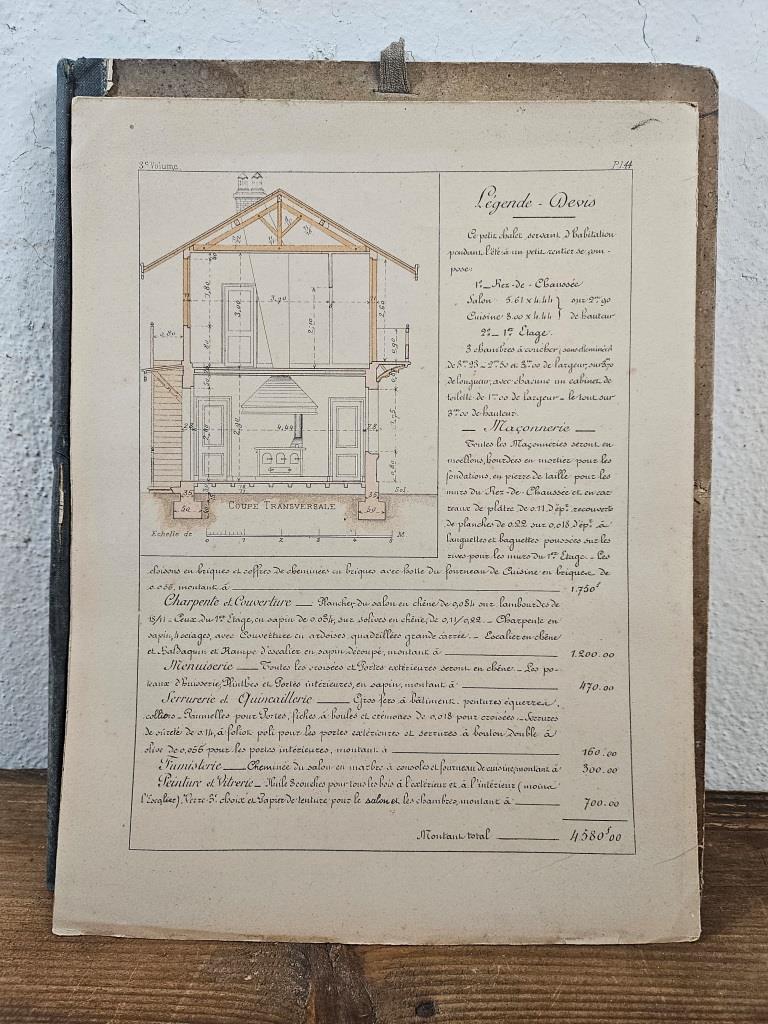 3e Volume.
Pl 44
Légende - Devis
Ce petit chalet servant d'habitation
pendant l'été à un petit rentier se com-
pose:
1º_ Rez-de-Chaussée
Salon 5.61 x 4.44 } sur 2m90
Cuisine 3.00 x 4.44 } de hauteur
2º_ 1er Etage.
3 chambres à coucher, sans cheminées
de largeur, sur
de longueur, avec chacune un cabinet de
toilette de 1m00 de largeur - le tout sur
3m00 de hauteur.
_ Maçonnerie _
Toutes les Maçonneries seront en
moellons, hourdées en mortier pour les
fondations, en pierre de taille pour les
murs du Rez-de-Chaussée et en car
reaux de plâtre de 0.11 d'épr recouverts
de planches de 0.22 sur 0,018 d'épr à
languettes et baguettes poussées sur les
rives pour les murs du 1er Etage. - Les
cloisons en briques et coffres de cheminées en briques avec hotte du fourneau de Cuisine en briques de
0.056, montant à _ 1.750f
Charpente et Couverture _ Plancher du salon en chêne de 0,034 sur lambourdes de
18/11 - Ceux du 1er Etage, en sapin de 0.034, sur solives en chêne, de 0,11/0,22. - Charpente en
sapin, 4 sciages, avec Couverture en ardoises, quadrillées grande carrée. - Escalier en chêne
et Baldaquin et Rampe d'escalier en sapin découpé, montant à _ 1.200.00
Menuiserie _ Toutes les croisées et Portes extérieures seront en chêne. - Les po-
teaux d'huisserie, Plinthes et Portes intérieures, en sapin, montant à _ 470.00
Serrurerie et Quincaillerie _ Gros fers à bâtiment, pentures équerres,
colliers - Paumelles pour Portes, fiches à boules et crémones de 0,018 pour croisées - Serrures
de sûreté de 0.14, à foliot poli pour les portes extérieures et serrures à bouton double à
olive de 0,056 pour les portes intérieures, montant à _ 160.00
Fumisterie _ Cheminée du salon en marbre à consoles et fourneau de cuisine, montant à _ 300.00
Peinture et Vitrerie - Huile 3 couches pour tous les bois à l'extérieur et à l'intérieur (moins
l'Escalier), Verre 3e choix et Papier de tenture pour le salon et les chambres, montant à _ 700.00
Montant total _ 4.580f00
3,00
3,90
2,10
2,60
0,80
0,90
2,90
4,44
0,80
Sol.
35
35
50
50
COUPE TRANSVERSALE
Echelle de
0 1 2 3 4 5 M